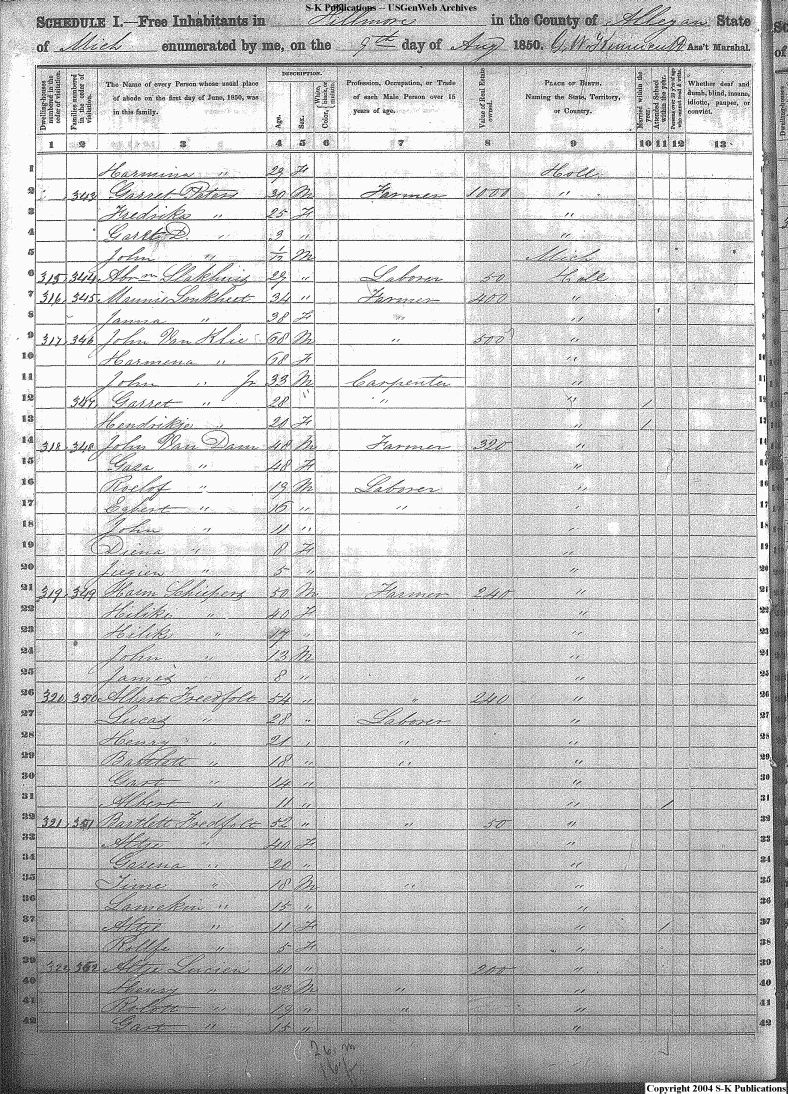 S-K Publications – USGenWeb Archives
SCHEDULE I.—Free Inhabitants in Fillmore in the County of Allegan State
of Mich enumerated by me, on the 9th day of Aug 1850. G. W. Ass't Marshal.
DESCRIPTION.
Dwelling-houses numbered in the order of visitation.
Families numbered in the order of visitation.
The Name of every Person whose usual place of abode on the first day of June, 1850, was in this family.
Age.
Sex.
White, black, or mulatto. Color
Profession, Occupation, or Trade of each Male Person over 15 years of age.
Value of Real Estate owned.
PLACE OF BIRTH. Naming the State, Territory, or Country.
Married within the year.
Attended School within the year.
Persons over 20 y'rs of age who cannot read & write.
Whether deaf and dumb, blind, insane, idiotic, pauper, or convict.
1 2 3 4 5 6 7 8 9 10 11 12 13
1 Harmina " 29 F Holl 1
2 342 Garret Peters 30 M Farmer 1000 " 2
3 Fredrika " 25 F " 3
4 Garet D. " 3 " " 4
5 John " 1/12 M Mich 5
6 315 344 29 " Laborer 50 Holl 6
7 316 345 34 " Farmer 400 " 7
8 Janna " 38 F " " 8
9 317 346 John Van Klie 68 M " 500 " 9
10 Harmena " 68 F " 10
11 John " Jr 33 M Carpenter " 11
12 347 Garret " 28 " " " / 12
13 Hendrikje " 20 F " / 13
14 318 348 John Van Dam 48 M Farmer 320 " 14
15 Gasa " 48 F " 15
16 Roelof " 19 M Laborer " 16
17 Egbert " 15 " " " 17
18 John " 11 " " 18
19 Diena " 8 F " 19
20 " 5 " " 20
21 319 349 Harm Schiepers 50 M Farmer 240 " 21
22 Hilike " 40 F " 22
23 Hilike " 17 " " 23
24 John " 13 M " 24
25 James " 8 " " 25
26 320 350 Albert Fredfolt 54 " " 240 " 26
27 Lucas " 28 " Laborer " 27
28 Henry " 21 " " " 28
29 Bartlett " 18 " " " 29
30 Gart " 14 " " 30
31 Albert " 11 " " / 31
32 321 351 Bartlett Fredfolt 52 " " 50 " 32
33 Altje " 40 F " 33
34 Gasena " 20 " " 34
35 Time " 18 M " " 35
36 Lamekin " 15 " " 36
37 Altje " 11 F " / 37
38 Rollfe " 5 F " 38
39 322 352 Altje Lucien 40 " 200 " 39
40 Henry " 23 M " " 40
41 Roloff " 19 " " " 41
42 Gart " 15 " " 42
26 m
16 f
Copyright 2004 S-K Publications